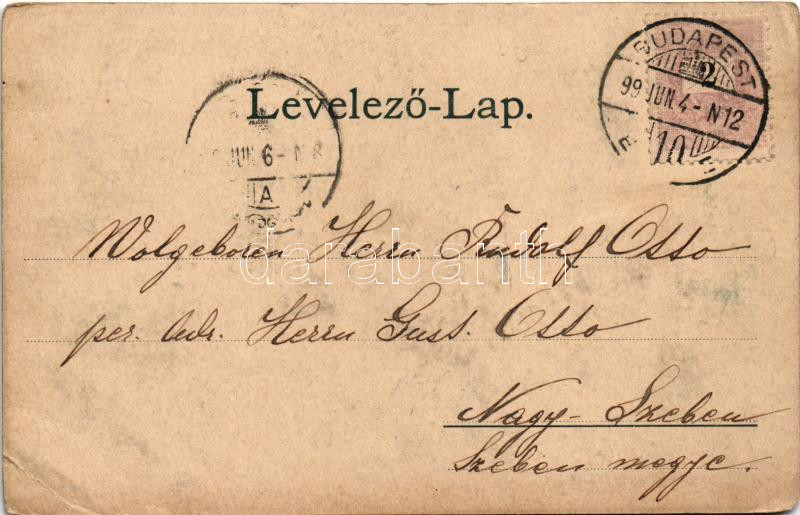 BUDAPEST
2
99 JUN. 4 - N12
10
Levelező-Lap.
JUN 6 - N
A
Wolgeboren Herrn Rudolf Otto
per. Adr. Herrn Gust. Otto
Nagy-Szeben
Szeben megye.
darabanth